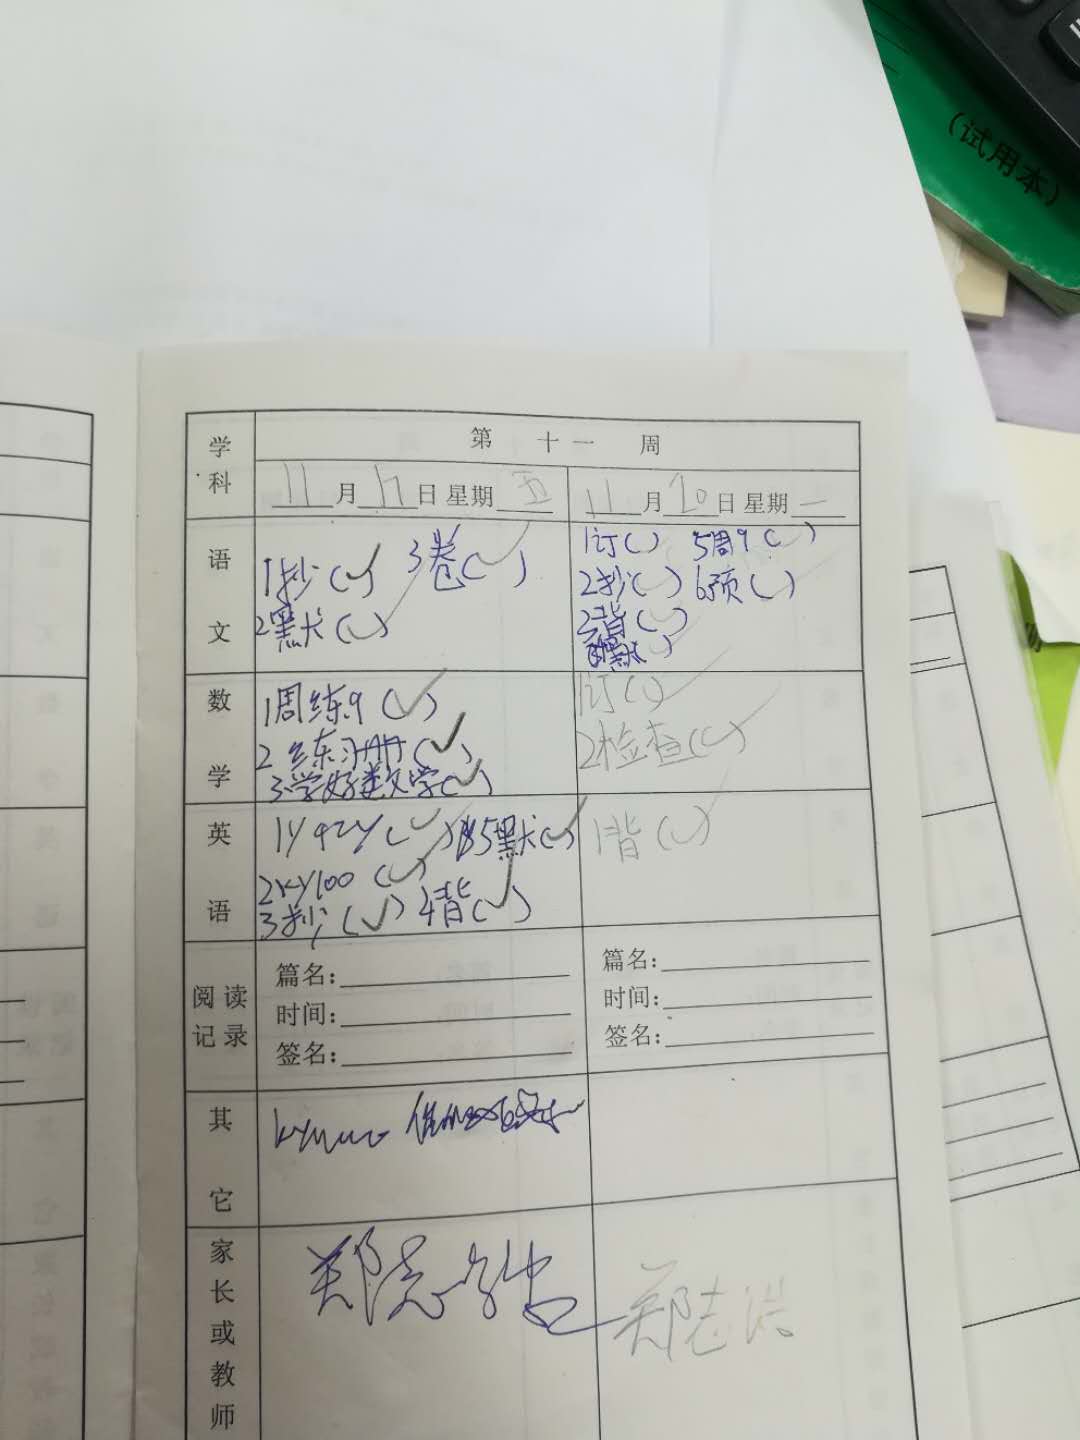 (试用本)
学科
第 十一 周
11月17日 星期五
11月20日 星期一
语文
1抄(✓) 3卷(✓)
2默(✓)
1订(✓) 5周9(✓)
2抄(✓) 6预(✓)
背(✓)
默(✓)
数学
1周练9(✓)
2练习册(✓)
3学好数学(✓)
1订(✓)
2检查(✓)
英语
(✓) 5默(✓)
2KY100(✓)
3抄(✓) 4背(✓)
1背(✓)
阅读记录
篇名:
时间:
签名:
篇名:
时间:
签名:
其它
家长或教师
郑志
郑志